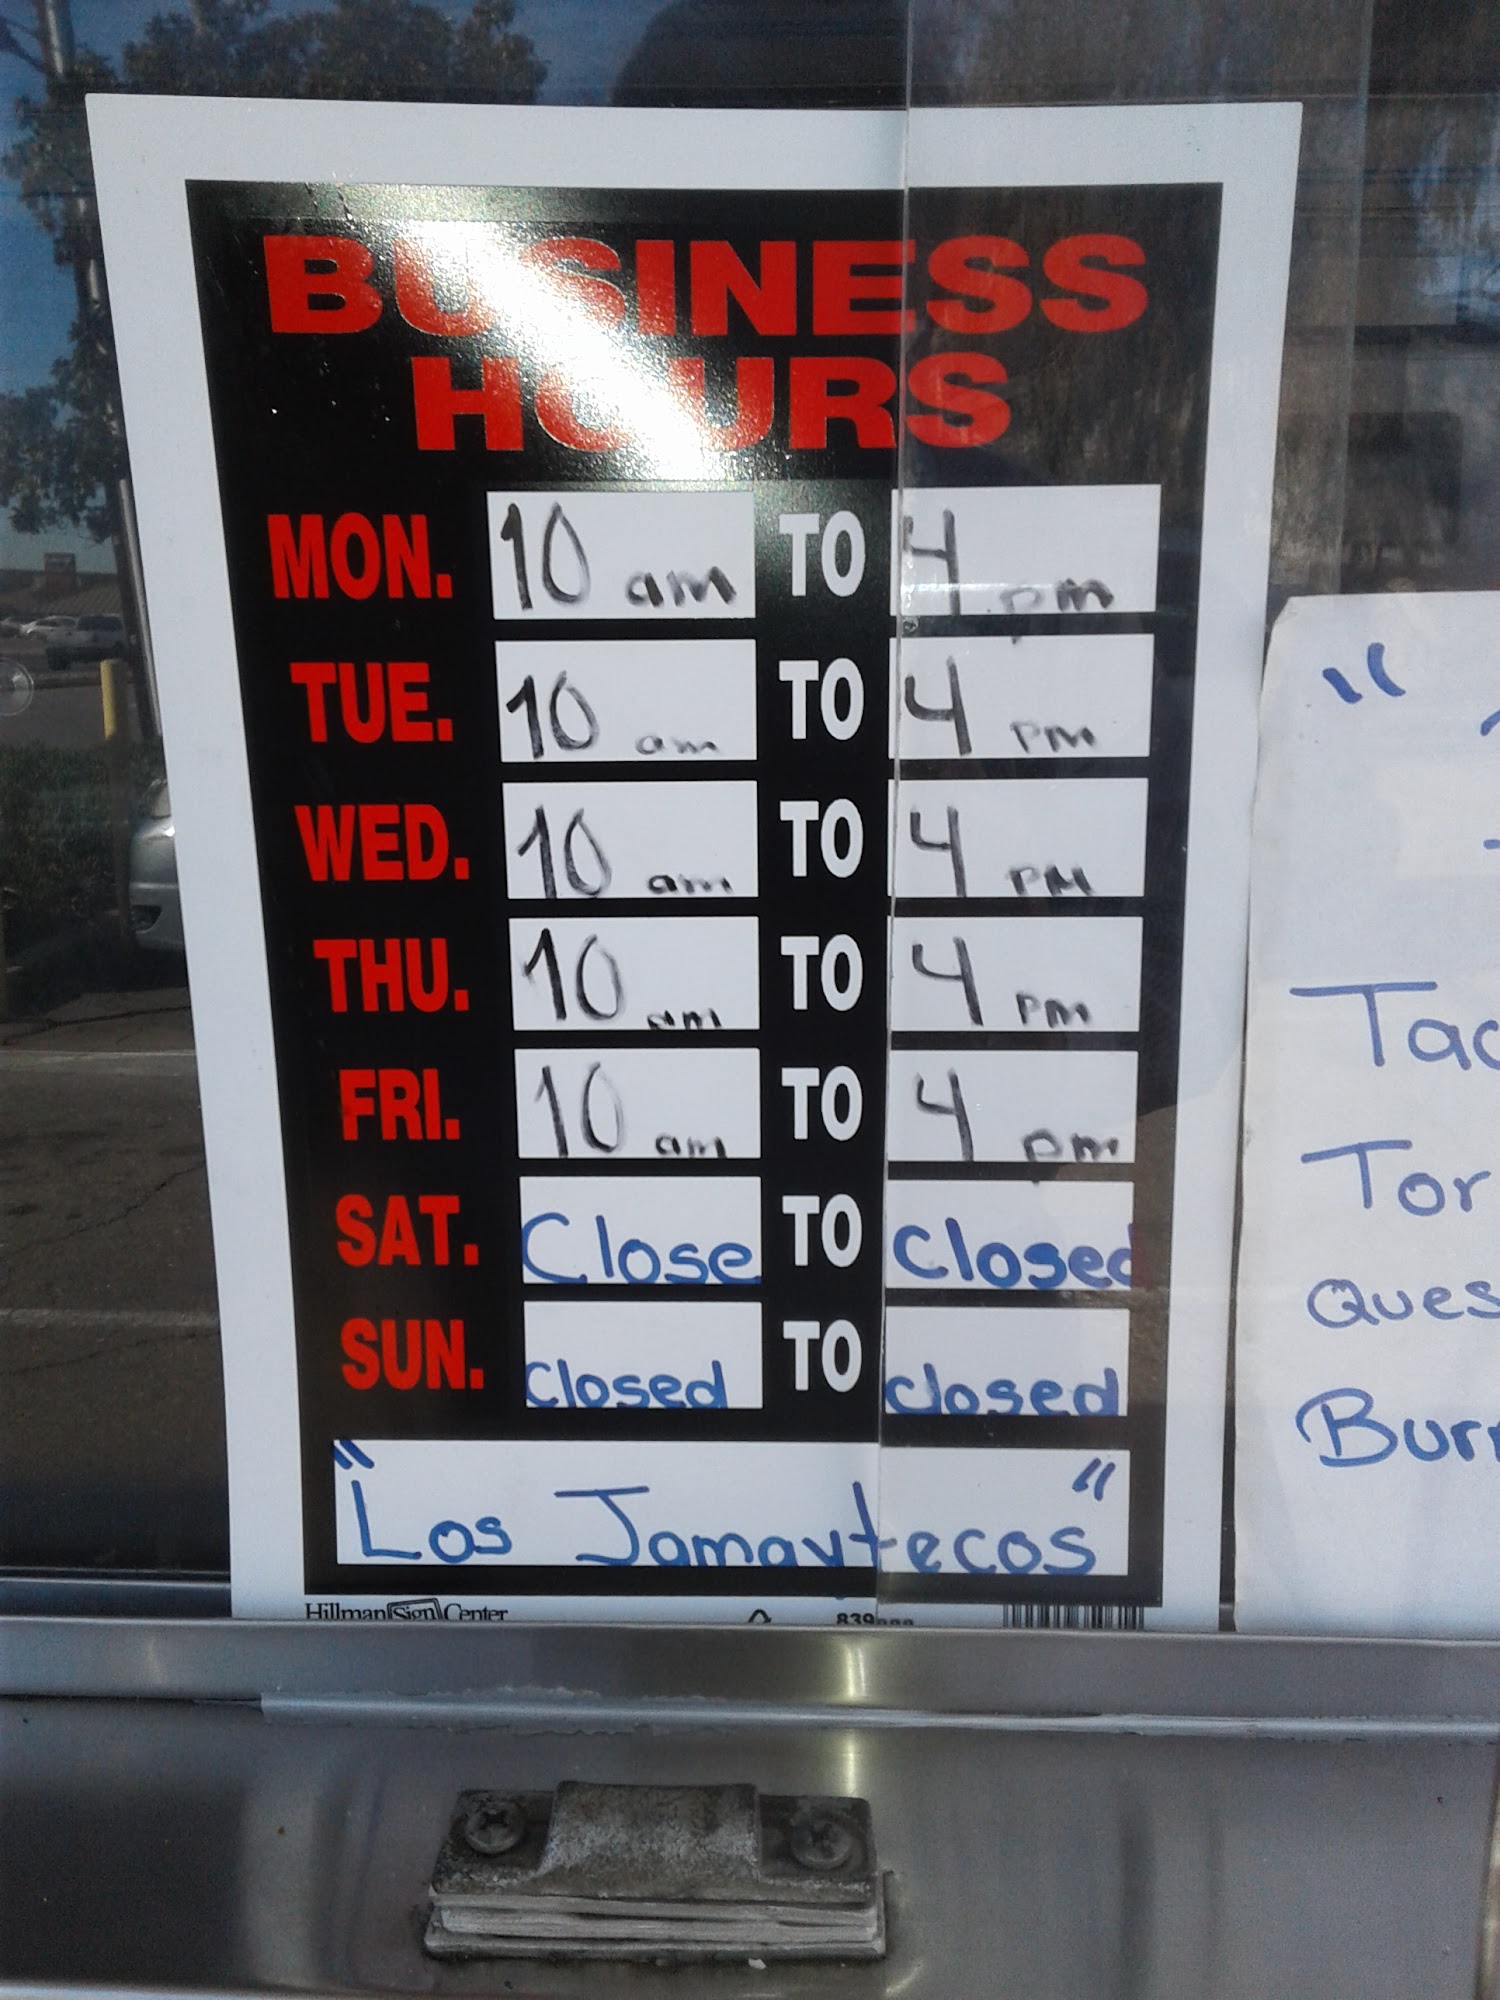 BUSINESS
HOURS
MON. 10 am TO 4 pm
TUE. 10 am TO 4 pm
WED. 10 am TO 4 PM
THU. 10 am TO 4 PM
FRI. 10 am TO 4 pm
SAT. Close TO Closed
SUN. Closed TO closed
"Los Jamaytecos"
Hillman Sign Center 839
"
Tac
Tor
Ques
Burr